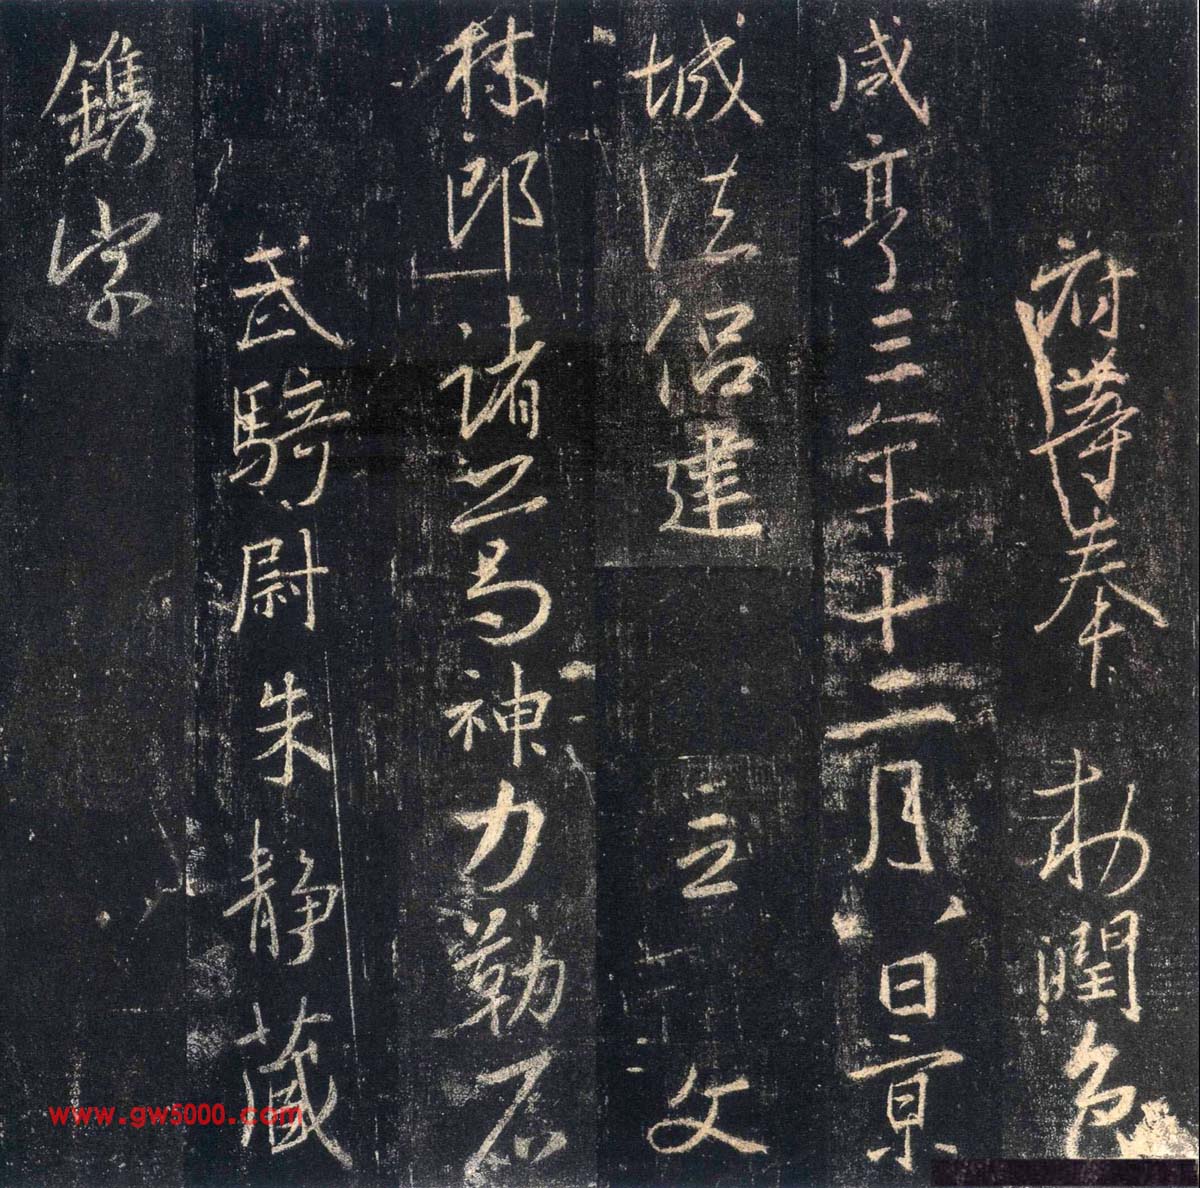 府等奉 勑潤色
咸亨三年十二月八日京
城法侣建 立 文
林郎諸葛神力勒石
武騎尉朱靜藏
鐫字
www.gw5000.com